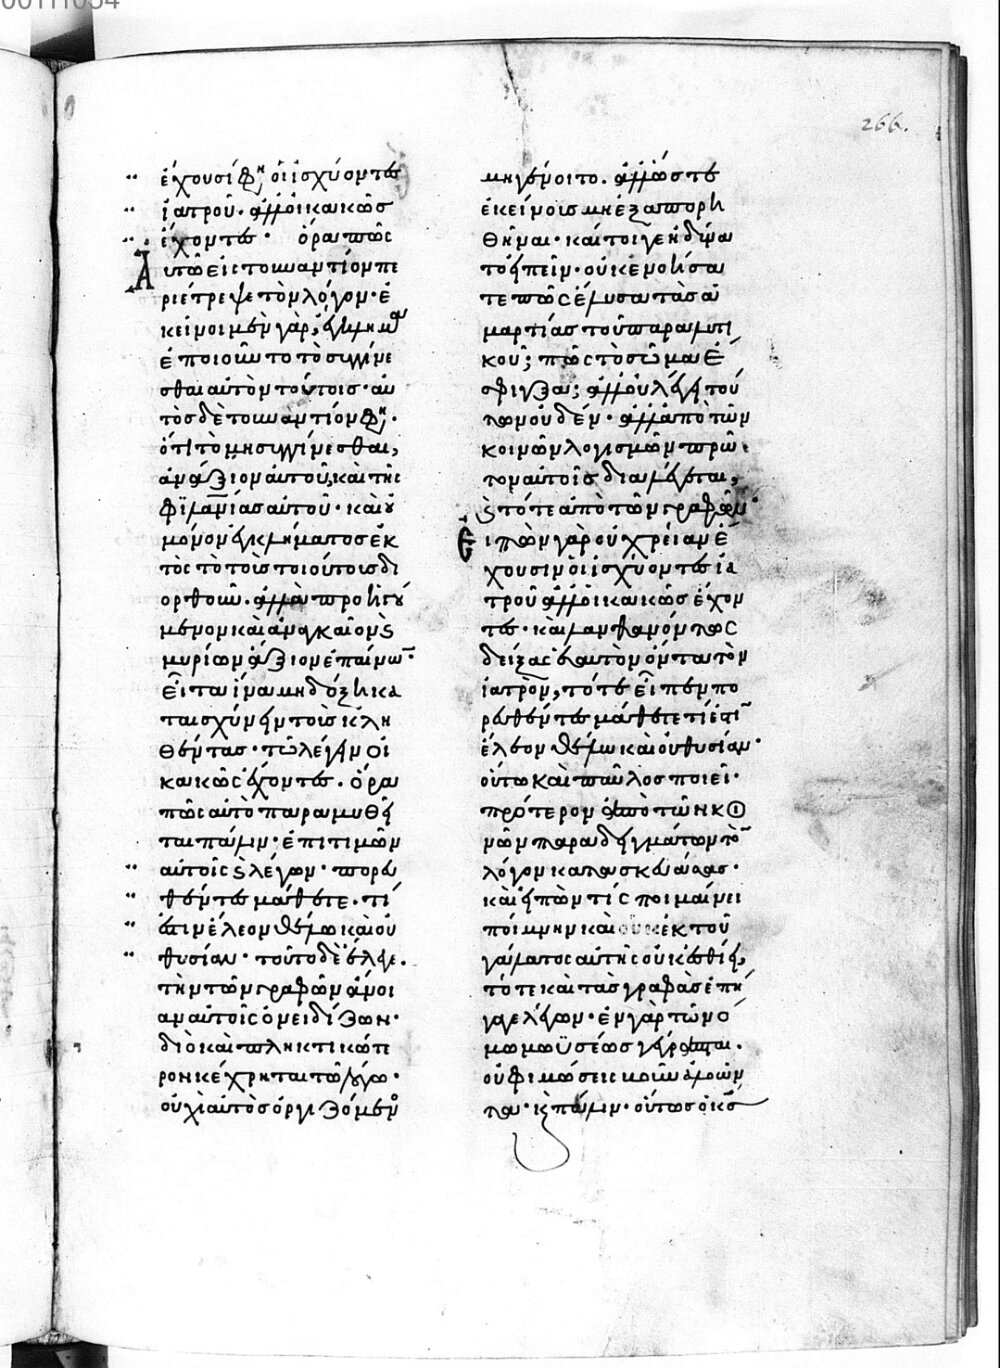 266.
ἔχουσί φη(σιν) οἱ ἰσχύοντες
ἰατροῦ· ἀλλ' οἱ κακῶς
ἔχοντες· ὅρα πῶς
αὐτῶ εἰς τοὐναντίον πε
ριέτρεψε τὸν λόγον· ἐ
κεῖνοι μὲν γὰρ, ἔγκλημα
ἐποιοῦντο τὸ συγγίνε
σθαι αὐτὸν τούτοις· αὐ
τὸς δὲ τοὐναντίον φη(σιν)·
ὅτι τὸ μὴ συγγίνεσθαι,
ἀνάξιον αὐτοῦ, καὶ τῆς
φιλανίας αὐτοῦ· καὶ οὐ
μόνον ἐγκλήματος ἐκ
τὸς τὸ τοὺς τοιούτους δι
ορθοῦν· ἀλλὰ προηγού
μενον καὶ ἀναγκαῖον καὶ
μυρίων ἄξιον ἐπαίνων·
Εἶτα ἵνα μὴ δόξη κα
ταισχύνειν τοὺς κλη
θέντας· τῶ λέγειν οἱ
κακῶς ἔχοντες· ὅρα
πῶς αὐτὸ παραμυθεῖ
ται πάλιν· ἐπιτιμῶν
αὐτοῖς καὶ λέγων· πορευ
θέντες μάθετε· τί
ἐστιν ἔλεον θέλω καὶ οὐ
θυσίαν· τοῦτο δὲ ἔλεγε·
τὴν τῶν γραφῶν ἄγνοι
αν αὐτοῖς ὀνειδίζων·
διὸ καὶ πληκτικώτε
ρον κέχρηται τῶ λόγω·
οὐχὶ αὐτὸς ὀργιζόμενος
μὴ γένοιτο· ἀλλ' ὥστε
ἐκείνοις μὴ ἐξαπορη
θῆναι· καίτοιγε ἠδύνα
το εἰπεῖν· οὐκ ἐνοήσα
τε πῶς ἔλυσα τὰς ἁ
μαρτίας τοῦ παραλυτι
κοῦ; πῶς τὸ σῶμα ἔ
σφιγξα; ἀλλ' οὐ λέγει τού
των οὐδέν· ἀλλ' ἀπὸ τῶν
κοινῶν λογισμῶν πρῶ
τον αὐτοῖς διαλέγεται,
καὶ τότε ἀπὸ τῶν γραφῶν·
Εἰπὼν γὰρ οὐ χρείαν ἔ
χουσιν οἱ ἰσχύοντες ἰα
τροῦ ἀλλ' οἱ κακῶς ἔχον
τες· καὶ λανθανόντως
δείξας ἑαυτὸν ὄντα τὸν
ἰατρὸν, τότε εἶπεν πο
ρευθέντες μάθετε τί ἐστιν
ἔλεον θέλω καὶ οὐ θυσίαν·
οὕτω καὶ παῦλος ποιεῖ·
πρότερον ἀπὸ τῶν κοι
νῶν παραδειγμάτων τὸν
λόγον κατασκευάσας·
καὶ εἰπὼν τίς ποιμαίνει
ποίμνην καὶ οὐκ ἐκ τοῦ
γάλατος αὐτῆς οὐκ ἐσθίει,
τότε καὶ τὰς γραφὰς ἐπή
γαγε λέγων· ἐν γὰρ τῶ νό
μω μωϋσέως γέγραπται·
οὐ φιμώσεις βοῦν ἀλοῶν
τα· καὶ πάλιν· οὕτως ὁ κς